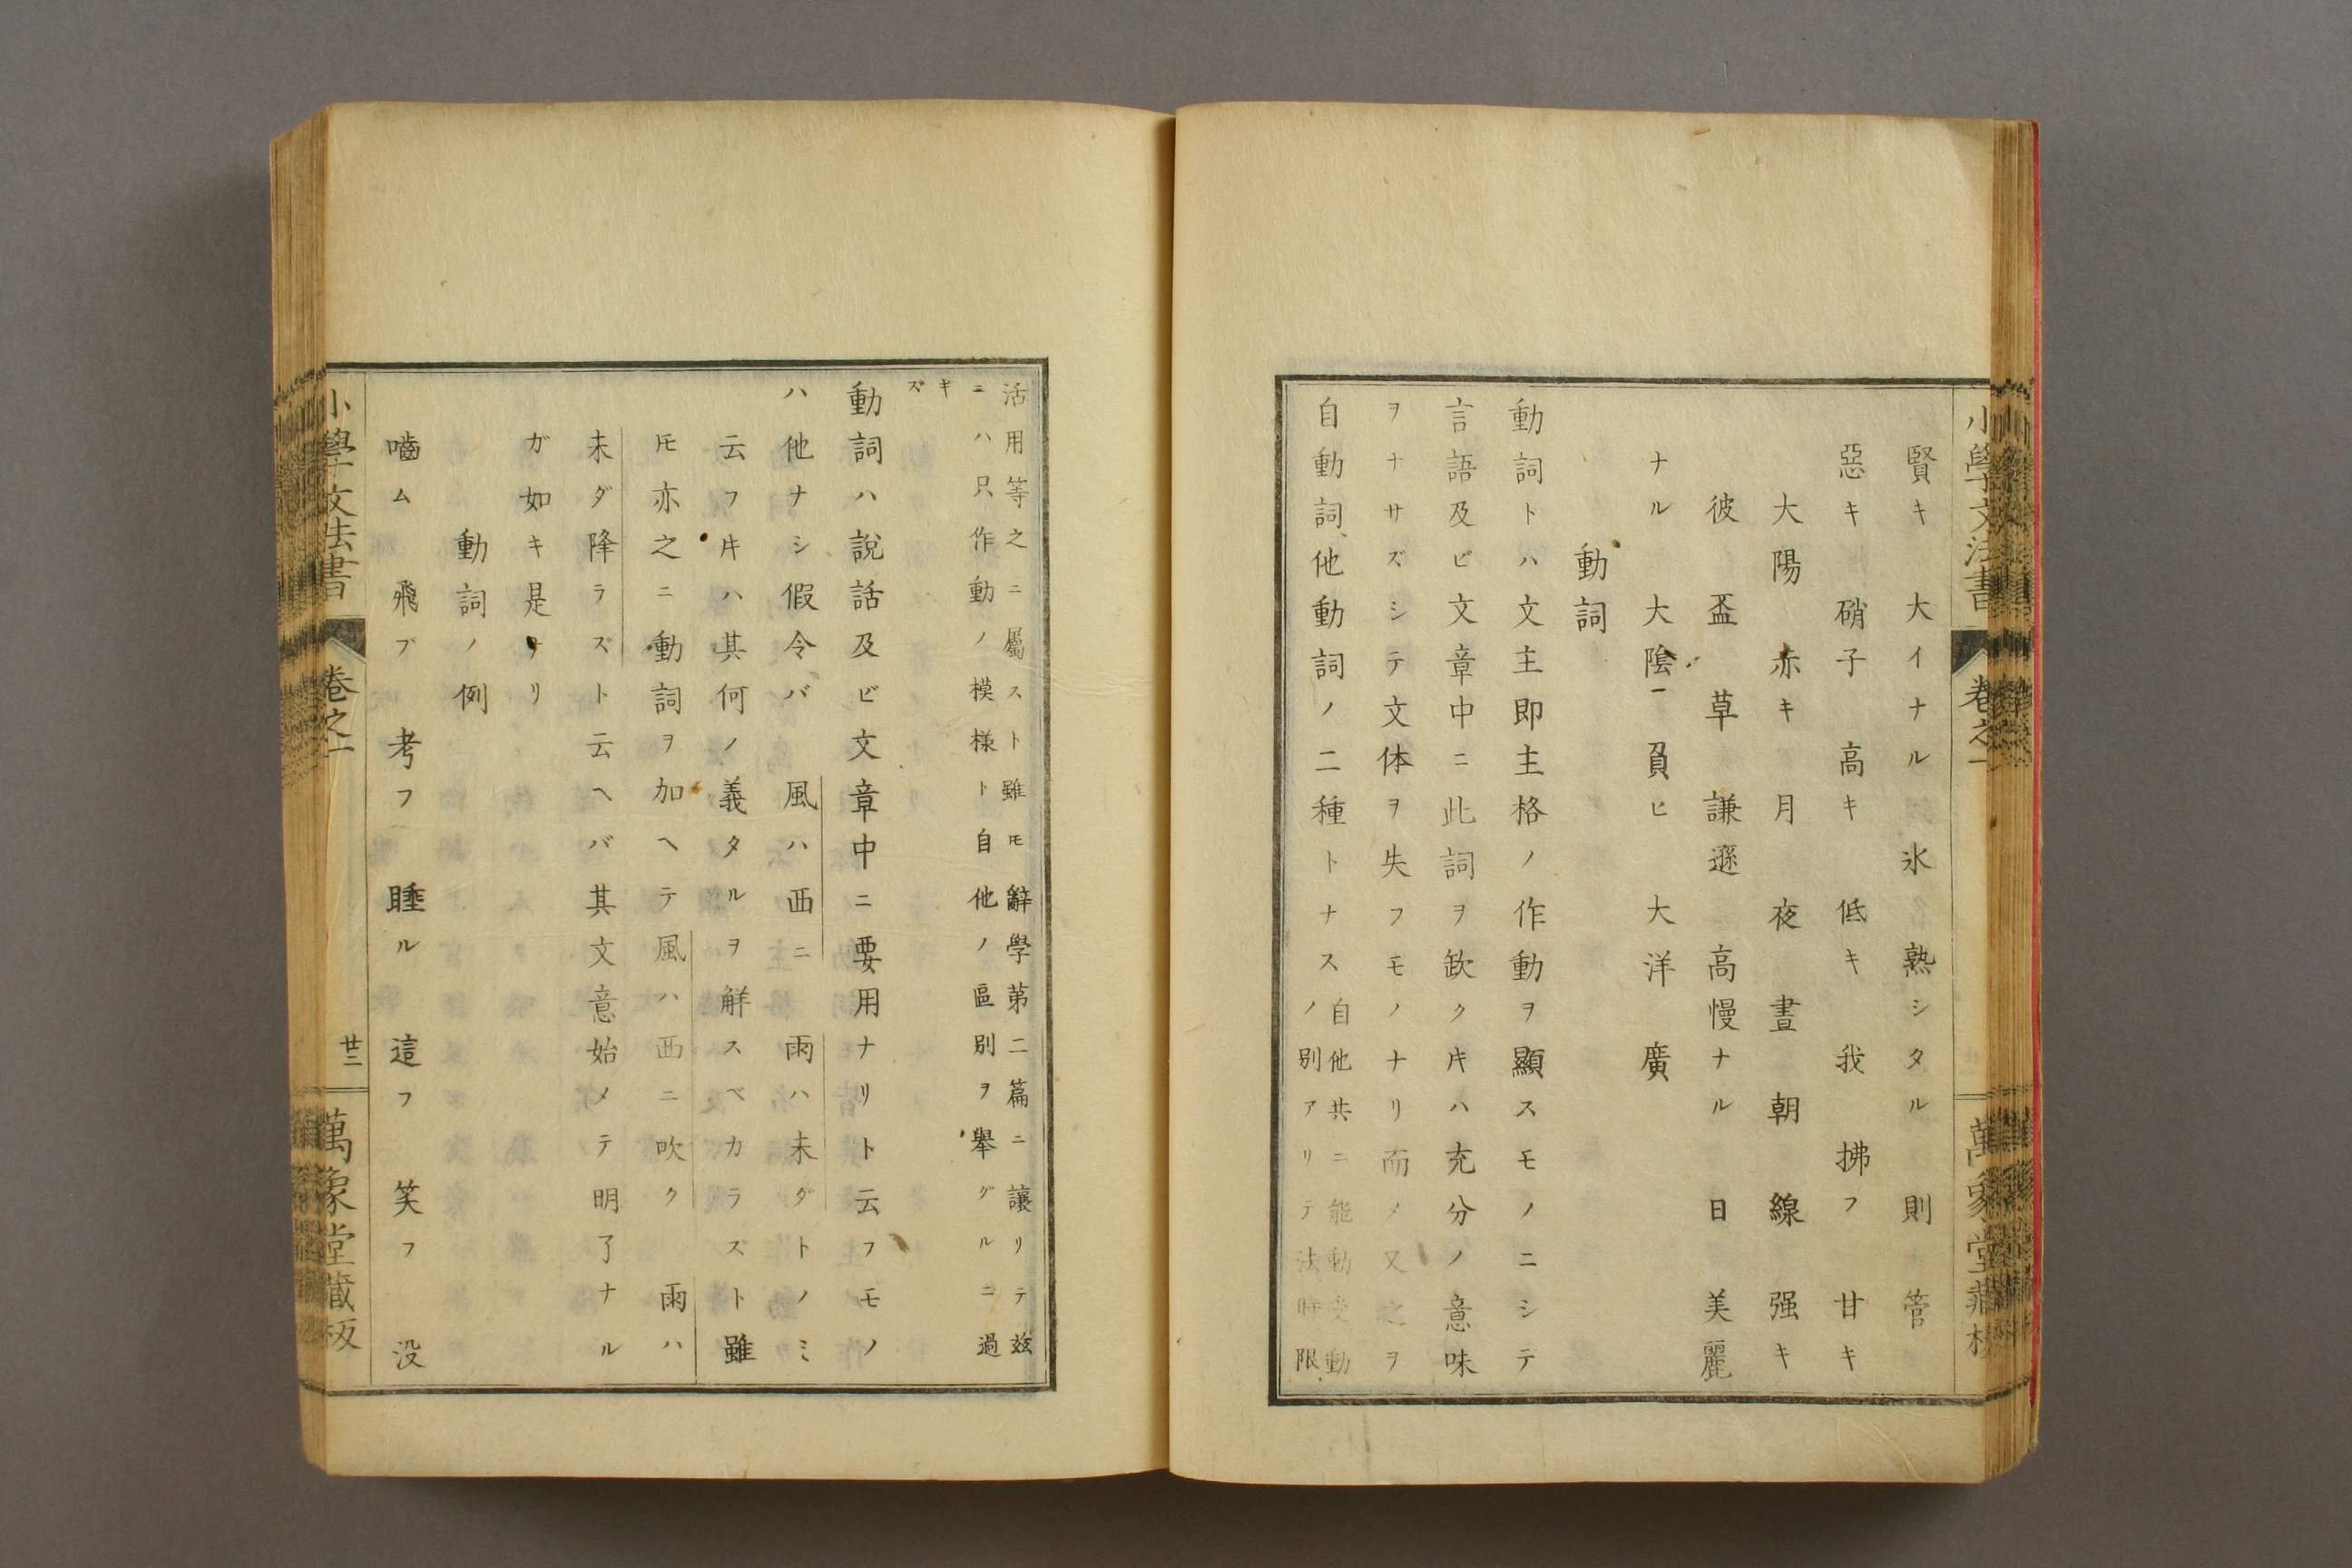 小學文法書 卷之一 萬象堂藏板
賢キ 大イナル 氷 熟シタル 則 管
惡キ 硝子 高キ 低キ 我 拂フ 甘キ
大陽 赤キ 月 夜 晝 朝 線 强キ
彼 盃 草 謙遜 高慢ナル 日 美麗
ナル 大陰 負ヒ 大洋 廣
動詞
動詞トハ文主即主格ノ作動ヲ顯スモノニシテ
言語及ビ文章中ニ此詞ヲ欽クㇰキハ充分ノ意味
ヲナサズシテ文体ヲ失フモノナリ而メ又之ヲ
自動詞、他動詞ノ二種トナス
自他共ニ能動受動
ノ別アリテ法時限
活用等之ニ屬スト雖𪜈辭學第二篇ニ讓リテ玆
ニハ只作動ノ模様ト自他ノ區別ヲ擧グルニ過
キ
ズ
動詞ハ說話及ビ文章中ニ要用ナリト云フモノ
ハ他ナシ假令バ 風ハ西ニ 雨ハ未ダトノミ
云フ𪜈ハ其何ノ義タルヲ解スベカラズト雖
𪜈亦之ニ動詞ヲ加ヘテ風ハ西ニ吹ク 雨ハ
未ダ降ラズト云ヘバ其文意始メテ明了ナル
ガ如キ是ナリ
動詞ノ例
嚙ム 飛ブ 考フ 睡ル 這フ 笑フ 没
小學文法書 卷之一 廿二 萬象堂藏板